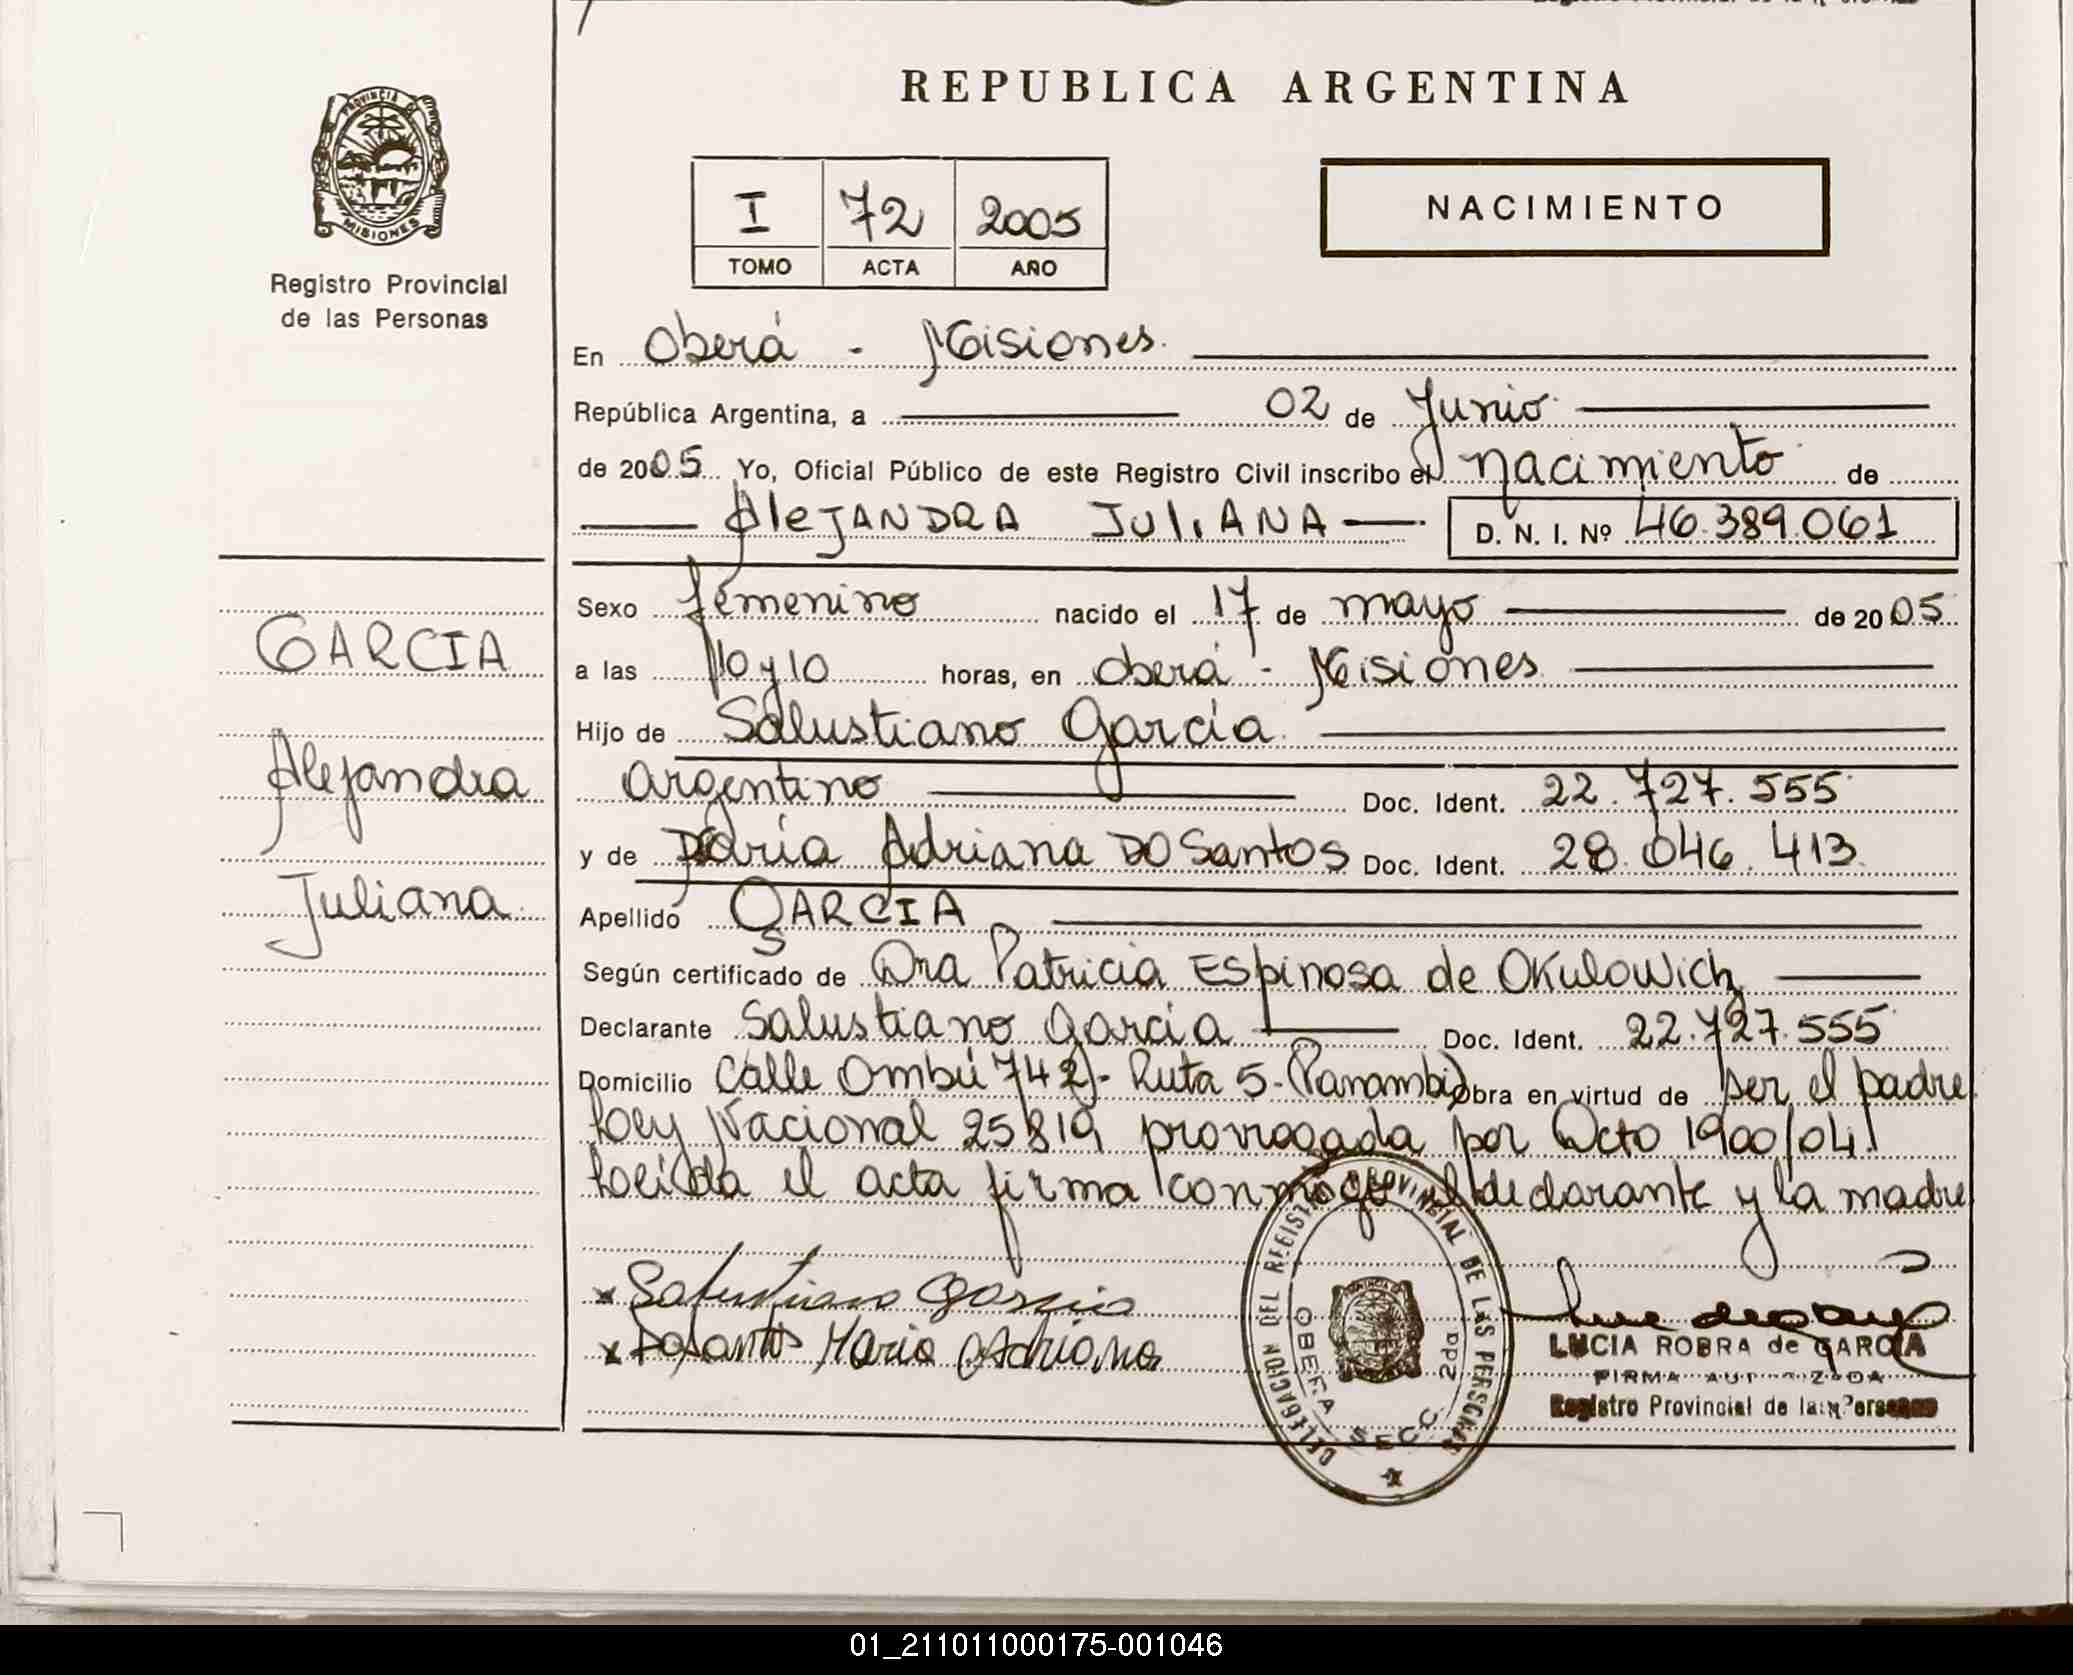 REPUBLICA ARGENTINA
PROVINCIA DE
MISIONES
Registro Provincial
de las Personas
I 72 2005
TOMO ACTA AÑO
NACIMIENTO
En Oberá - Misiones.
República Argentina, a 02 de Junio
de 2005 Yo, Oficial Público de este Registro Civil inscribo el nacimiento de
AleJANDRA JuLiANA D. N. I. Nº 46.389.061
GARCIA
Alejandra
Juliana
Sexo femenino nacido el 17 de mayo de 2005
a las 10 y 10 horas, en Oberá - Misiones
Hijo de Salustiano García
argentino Doc. Ident. 22.727.555
y de María Adriana DO Santos Doc. Ident. 28.046.413
Apellido GARCIA
S
Según certificado de Dra Patricia Espinosa de OKulowich
Declarante Salustiano García Doc. Ident. 22.727.555
Domicilio Calle Ombú 742)- Ruta 5-(Panambi) Obra en virtud de ser el padre
Ley Nacional 25819 prorrogada por Dcto 1900/04.
Leída el acta firma conmigo el declarante y la madre
x Salustiano Garcia
x Dosantos Maria Adriana
DELEGACION DEL REGISTRO PROVINCIAL DE LAS PERSONAS
OBERA SECC. 2DD
LUCIA ROBRA de GARCIA
FIRMA AUTORIZADA
Registro Provincial de las Personas
01_211011000175-001046